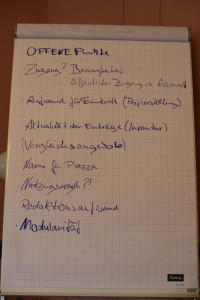 OFFENE Punkte
Zugang? Barrierefreiheit
öffentlicher Zugang vs. Account
Aufwand für Eintritt (Registrierung)
Aktualität der Einträge (Inventur)
(Vergleichsangebote)
Name für Piazza
Nutzungsrecht?!
Redaktionsaufwand
• Modularität